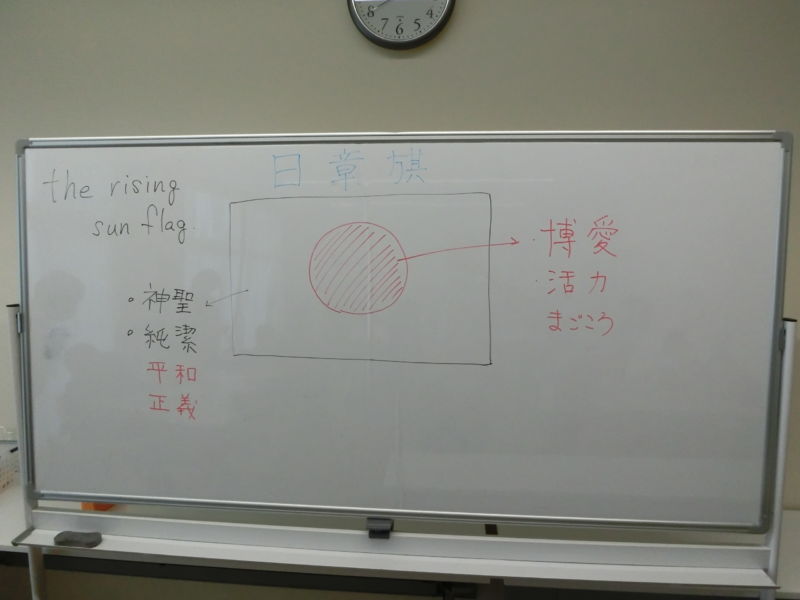 8 7 6 5 4
日章旗
the rising
sun flag.
・博愛
・活力
まごころ
・神聖
・純潔
平和
正義